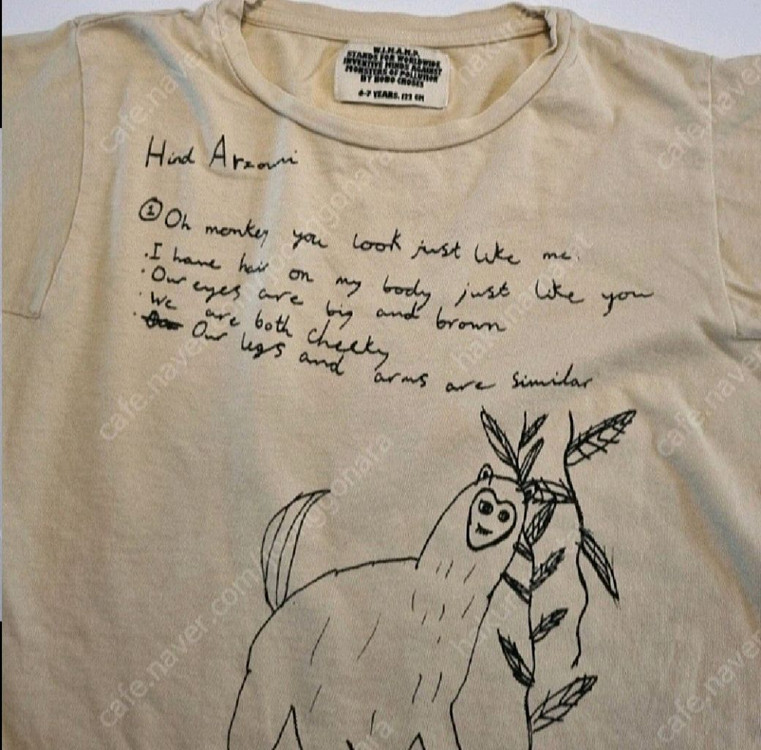 W.I.M.A.M.P.
STANDS FOR WORLDWIDE
INVENTIVE MINDS AGAINST
MONSTERS OF POLLUTION
BY BOBO CHOSES
6-7 YEARS. 122 CM
Hind Arzouni
① Oh monkey you look just like me.
·I have hair on my body just like you
·Our eyes are big and brown
·We are both cheeky
· Our legs and arms are similar
cafe.naver.com/joonggonara